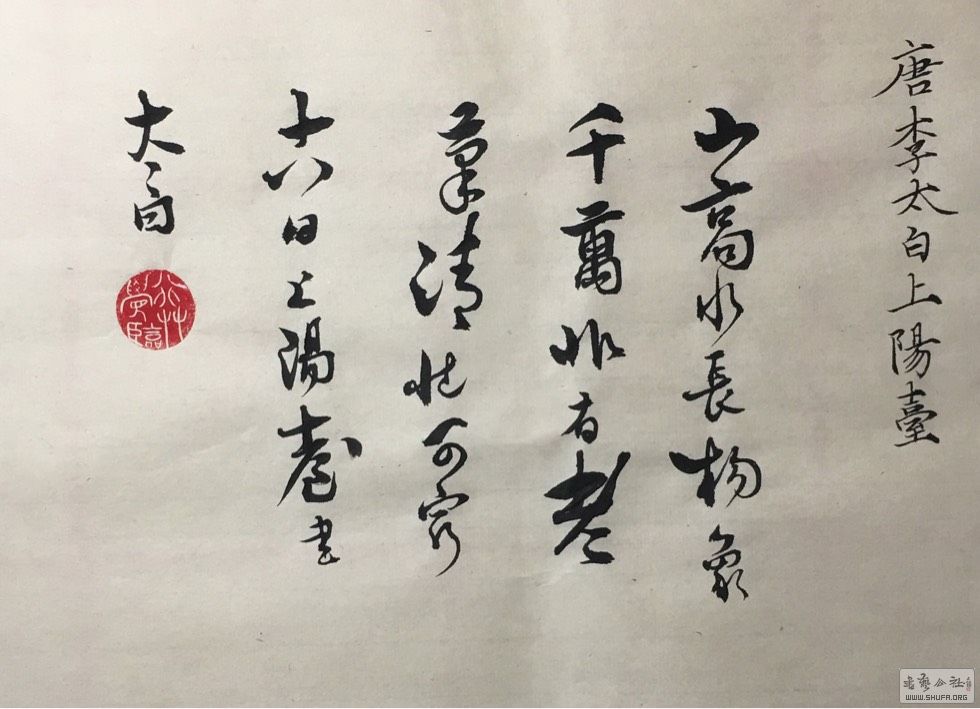 唐李太白上陽臺
山高水長物象
千萬非有老
筆清壯可窮
十八日上陽臺書
太白
行艸學臨
書藝公社
WWW.SHUFA.ORG